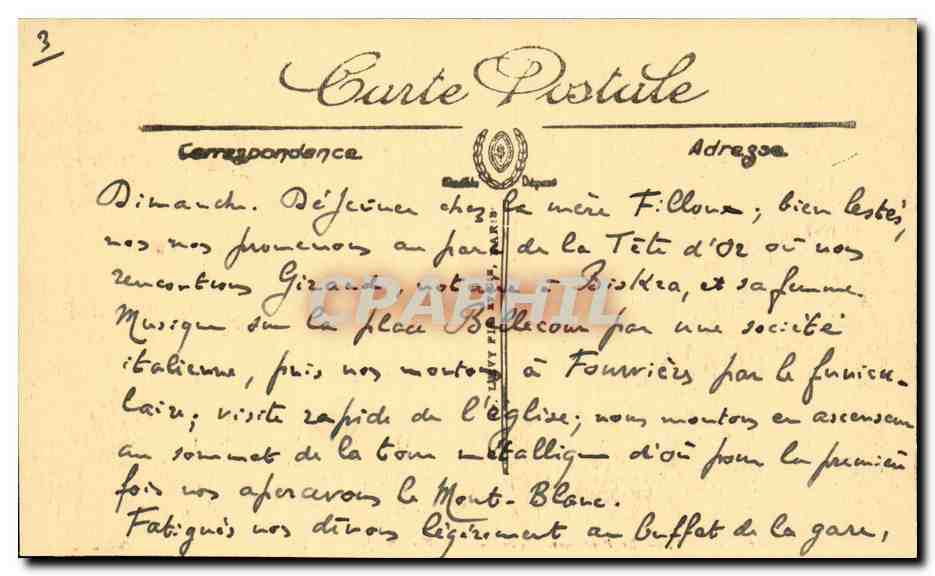 3
Carte Postale
Correspondance
Adresse
Marque Déposé
LEVY FILS PARIS
Dimanche. Déjeuner chez la mère Filloux; bien lestés,
nos nos promenons au parc de la Tête d'Or où nous
rencontrons Giraud, notaire à Biskra, et sa femme.
Musique sur la place Bellecour par une société
italienne, puis nos montons à Fourvière par le funicu-
laire; visite rapide de l'église; nous montons en ascenseur
au sommet de la tour métallique d'où pour la première
fois nos apercevons le Mont-Blanc.
Fatigués nos dînons légèrement au buffet de la gare,
CPAPHIL